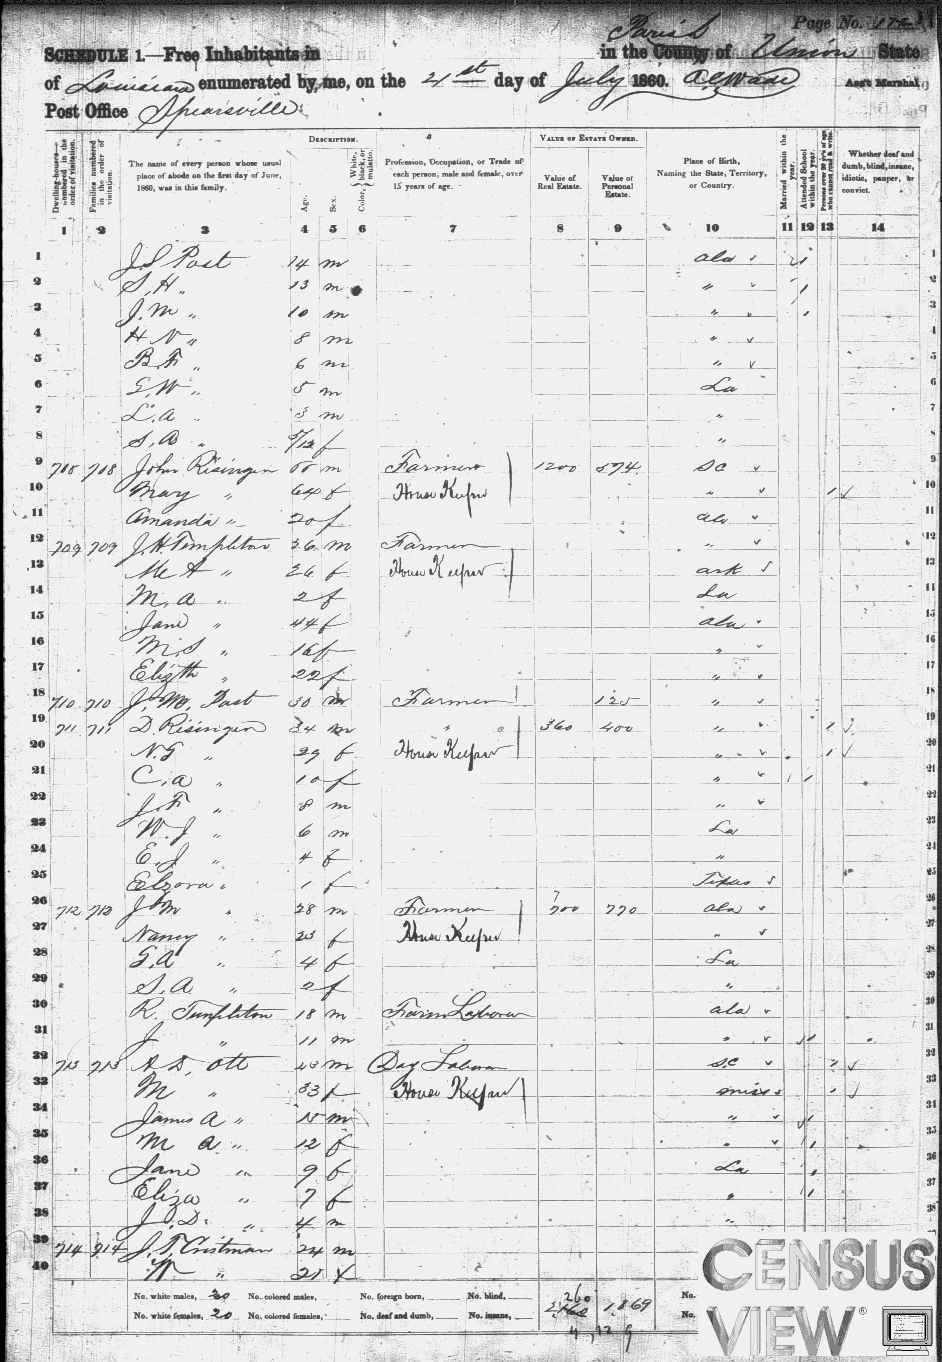 Page No. 172
SCHEDULE 1.—Free Inhabitants in in the County of Parish Union State
of Louisiana enumerated by me, on the 21st day of July 1860. Ass't Marshal
Post Office Spearsville
DESCRIPTION. VALUE OF ESTATE OWNED.
Dwelling-houses—numbered in the order of visitation. Families numbered in the order of visitation. The name of every person whose usual place of abode on the first day of June, 1860, was in this family. Age. Sex. Color, White, black, or mulatto. Profession, Occupation, or Trade of each person, male and female, over 15 years of age. Value of Real Estate. Value of Personal Estate. Place of Birth, Naming the State, Territory, or Country. Married within the year. Attended School within the year. Persons over 20 y'rs of age who cannot read & write. Whether deaf and dumb, blind, insane, idiotic, pauper, or convict.
1 2 3 4 5 6 7 8 9 10 11 12 13 14
1 J.S Post 14 m ala 1 1
2 S. H " 13 m " 1 2
3 J. M " 10 m " 3
4 H N " 8 m " 4
5 B. F " 6 m " 5
6 G. W " 5 m La 6
7 L. A " 3 m " 7
8 S. A " /12 f " 8
9 708 708 John Risinger m Farmer 1200 874 SC 9
10 Mary " 64 f House Keeper " 1 10
11 Amanda " 20 f ala 11
12 709 709 J. H Templeton 26 m Farmer " 12
13 " 26 f House Keeper ark 13
14 M. a " 2 f La 14
15 Jane " 44 f ala 15
16 M. S " 16 f " 16
17 Elizth " 22 f " 17
18 710 710 J. M. Post 30 m Farmer 125 " 18
19 711 711 D Risinger 34 m " " 360 400 " 1 19
20 N. G " 29 f House Keeper " 1 20
21 C. a " 10 f " 1 21
22 J. F " 8 m " 22
23 W. J " 6 m La 23
24 E. J " 4 f " 24
25 Elzora " 1 f Texas 25
26 712 712 J M " 28 m Farmer 700 770 ala 26
27 Nancy " 23 f House Keeper " 27
28 G. A " 4 f La 28
29 S. A " 2 f " 29
30 R. Templeton 18 m Farm Laborer ala 30
31 J " 11 m " 1 31
32 713 713 A D. Ott 43 m Day Laborer S.C 1 32
33 M " 33 f House Keeper miss 1 33
34 James A " 15 m " 1 34
35 M A " 12 f " 1 35
36 Jane " 9 f La 1 36
37 Eliza " 7 f " 1 37
38 J. D. " 4 m " 38
39 714 714 J. T. Cristman 24 m
40 " 21 f
No. white males, 20 No. colored males, No. foreign born, No. blind, 260 1,869 No.
No. white females, 20 No. colored females, No. deaf and dumb, No. insane, No.
CENSUS
VIEW®